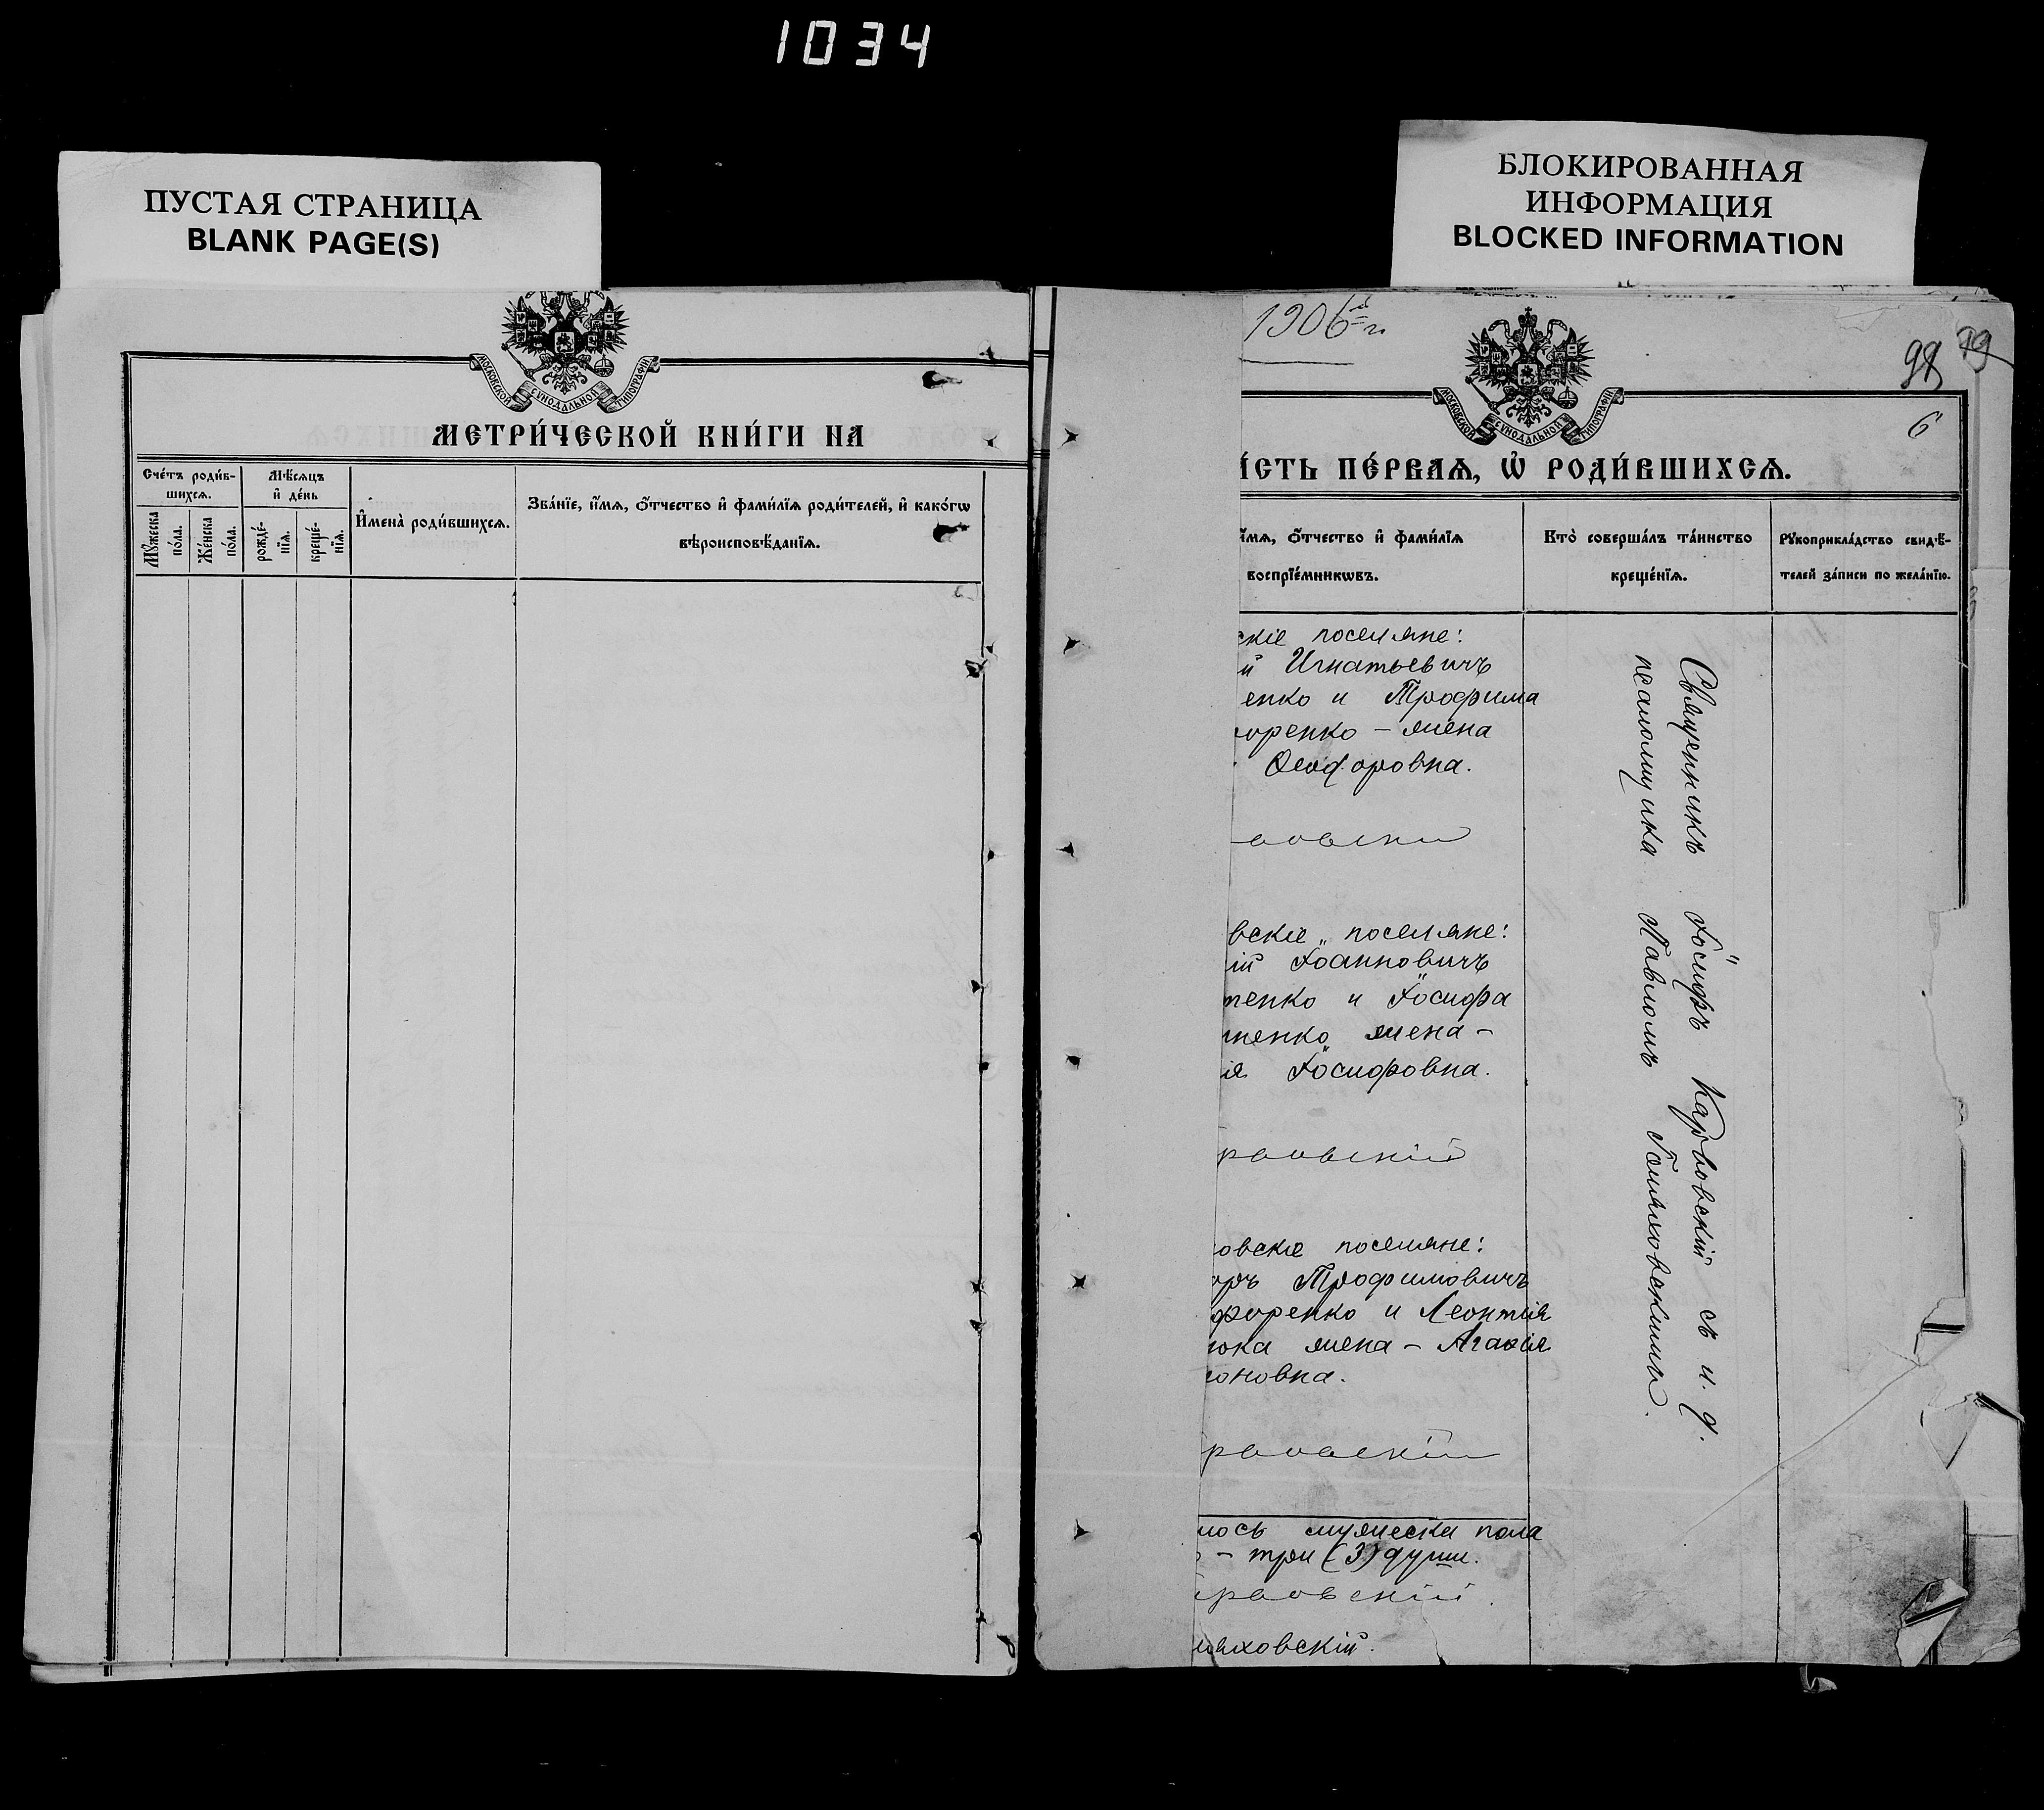 1034
ПУСТАЯ СТРАНИЦА
BLANK PAGE(S)
БЛОКИРОВАННАЯ
ИНФОРМАЦИЯ
BLOCKED INFORMATION
МОСКОВСКОЙ СѴНОДАЛЬНОЙ ТИПОГРАФІИ
МЕТРИ́ЧЕСКОЙ КНИ́ГИ НА
Сче́тъ роди́в-
шихся.
Мѣ́сяцъ
и҆ де́нь
И҆мена̀ роди́вшихся.
Зва́нїе, и҆́мя, ѻ҆́тчество и҆ фами́лїя роди́телей, и҆ како́гѡ
вѣроисповѣ́данїя.
Мꙋ́жеска
по́ла.
Же́нска
по́ла.
рожде́-
нїя.
креще́-
нїя.
1906 г.
98 79
6
МОСКОВСКОЙ СѴНОДАЛЬНОЙ ТИПОГРАФІИ
И́СТЬ ПЕ́РВАЯ, Ѡ҆ РОДИ́ВШИХСЯ.
и҆́мя, ѻ҆́тчество и҆ фами́лїя
воспрїе́мникѡвъ.
Кто̀ соверша́лъ та́инство
креще́нїя.
Рꙋкоприкла́дство свидѣ́-
телей за́писи по жела́нїю.
скіе поселяне:
й Игнатьевичъ
енко и Трофима
оренко – жена
Ѳеодоровна.
вскіе поселяне:
ій Іоанновичъ
ченко и Іосифа
ченко жена –
ія Іосифовна.
рвовскій
овскіе поселяне:
оръ Трофимовичъ
форенко и Леонтія
юка жена – Агаѳія
оновна.
рвовскій
лось мужеска пола
– три (3) души.
рвовскій.
ляховскій.
Священникъ Іосифъ Карвовскій съ и. д.
псаломщика Павломъ Голяховскимъ.